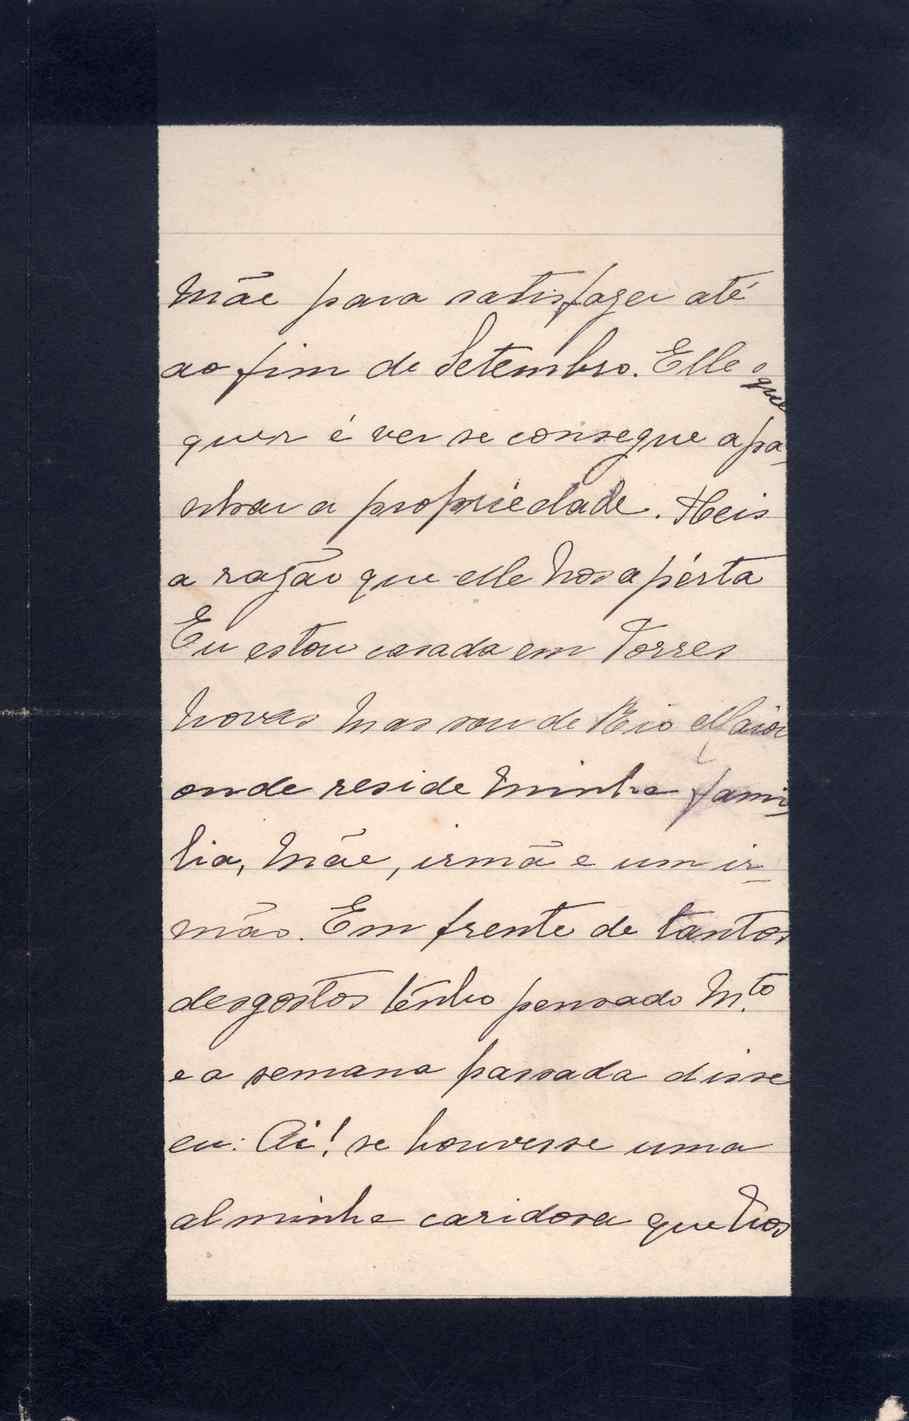 Mãe para satisfazer até
ao fim de Setembro. Elle o que
quer é ver se consegue apa-
nhar a propriedade. Heis
a razão que elle nos apérta
Eu estou casada em Torres
Novas mas sou de Rio Maior
onde reside minha fami-
lia, Mãe, irmã e um ir-
mão. Em frente de tantos
desgostos tenho pensado M.to
e a semana passada disse
eu: Ai! se houvesse uma
alminha caridosa que nos